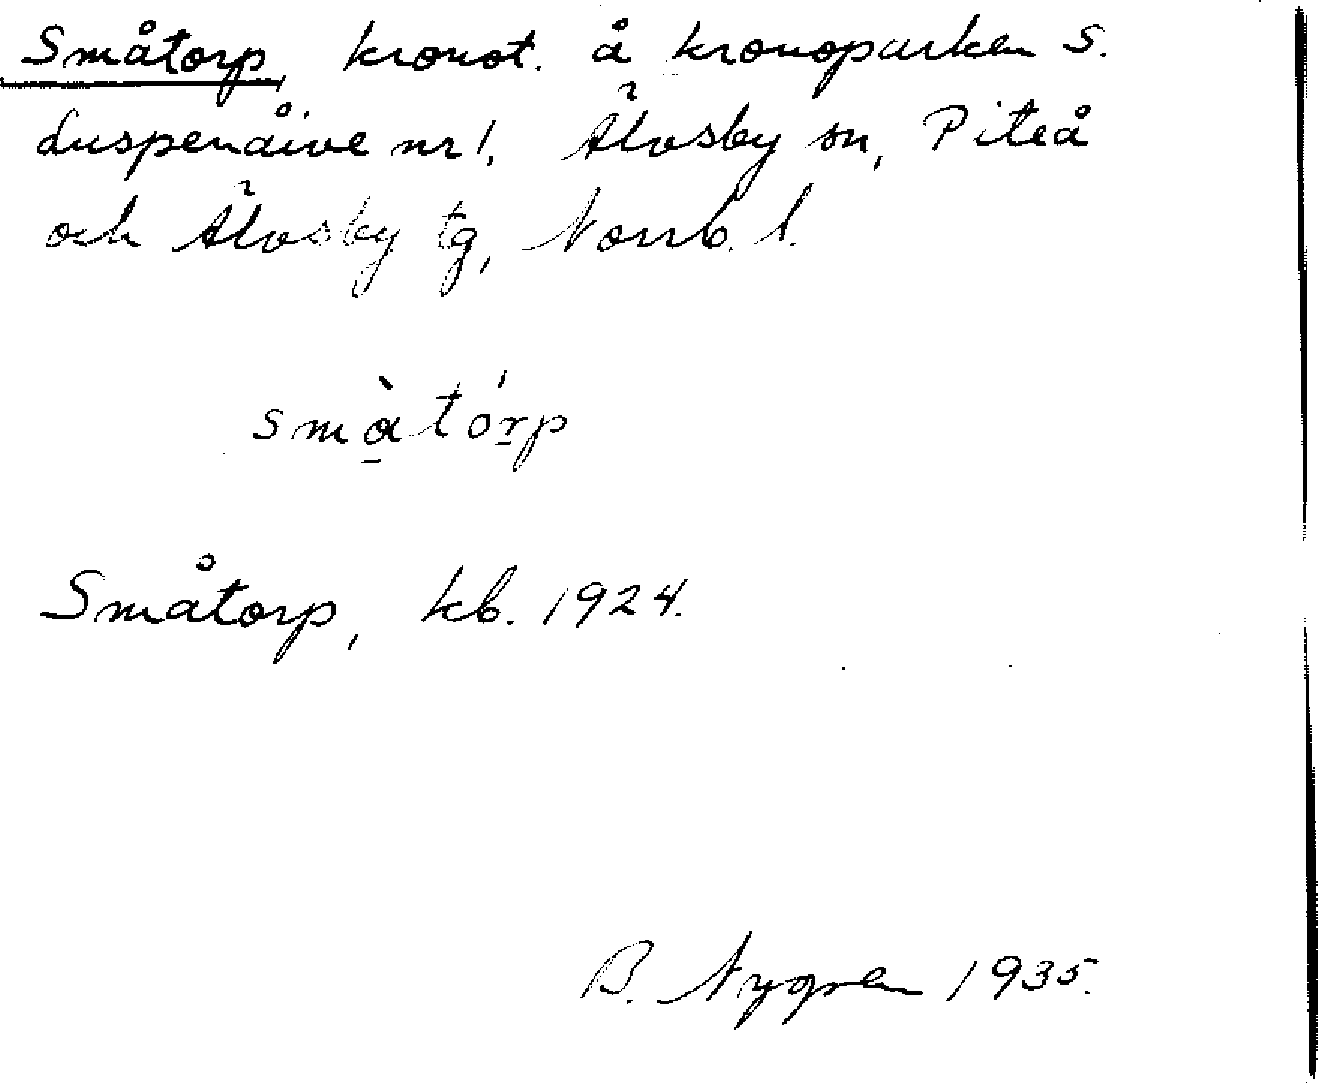 Småtorp, kronot. å kronoparken S.
Luspenåive nr 1, Älvsby sn, Piteå
och Älvsby tg, Norrb. l.
smàtórp
Småtorp, kb. 1924.
B. Nygren 1935.